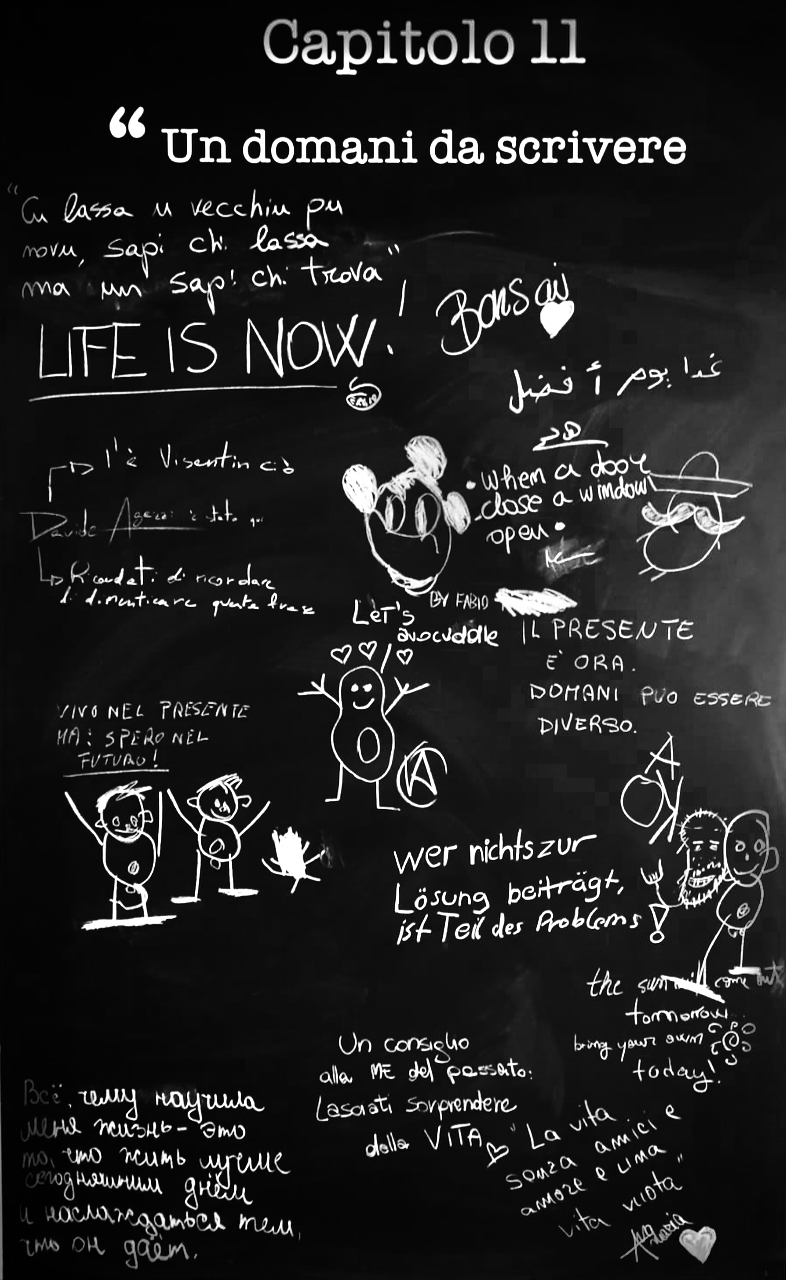 Capitolo 11
“ Un domani da scrivere
"Cu lassa u vecchiu pu
novu, sapi chi lassa
ma un sapi chi trova"
LIFE IS NOW!
Bonsai
غدا يوم أفضل
l'è Visentin ciò
Davide è stato qui
Ricordati di ricordare
di dimenticare questa frase
• When a door
close a window
open •
BY FABIO
LeT's
avocuddle
IL PRESENTE
E' ORA.
DOMANI PUO ESSERE
DIVERSO.
VIVO NEL PRESENTE
MA: SPERO NEL
FUTURO!
A
wer nichts zur
Lösung beiträgt,
ist Teil des Problems!
the sun will come out
tomorrow...
bring your own
today!
Un consiglio
alla ME del passato:
Lasciati sorprendere
della VITA
"La vita
senza amici e
amore e una
vita vuota"
Всё, чему научила
меня жизнь - это
то, что жить лучше
сегодняшним днём
и наслаждаться тем,
что он даёт.